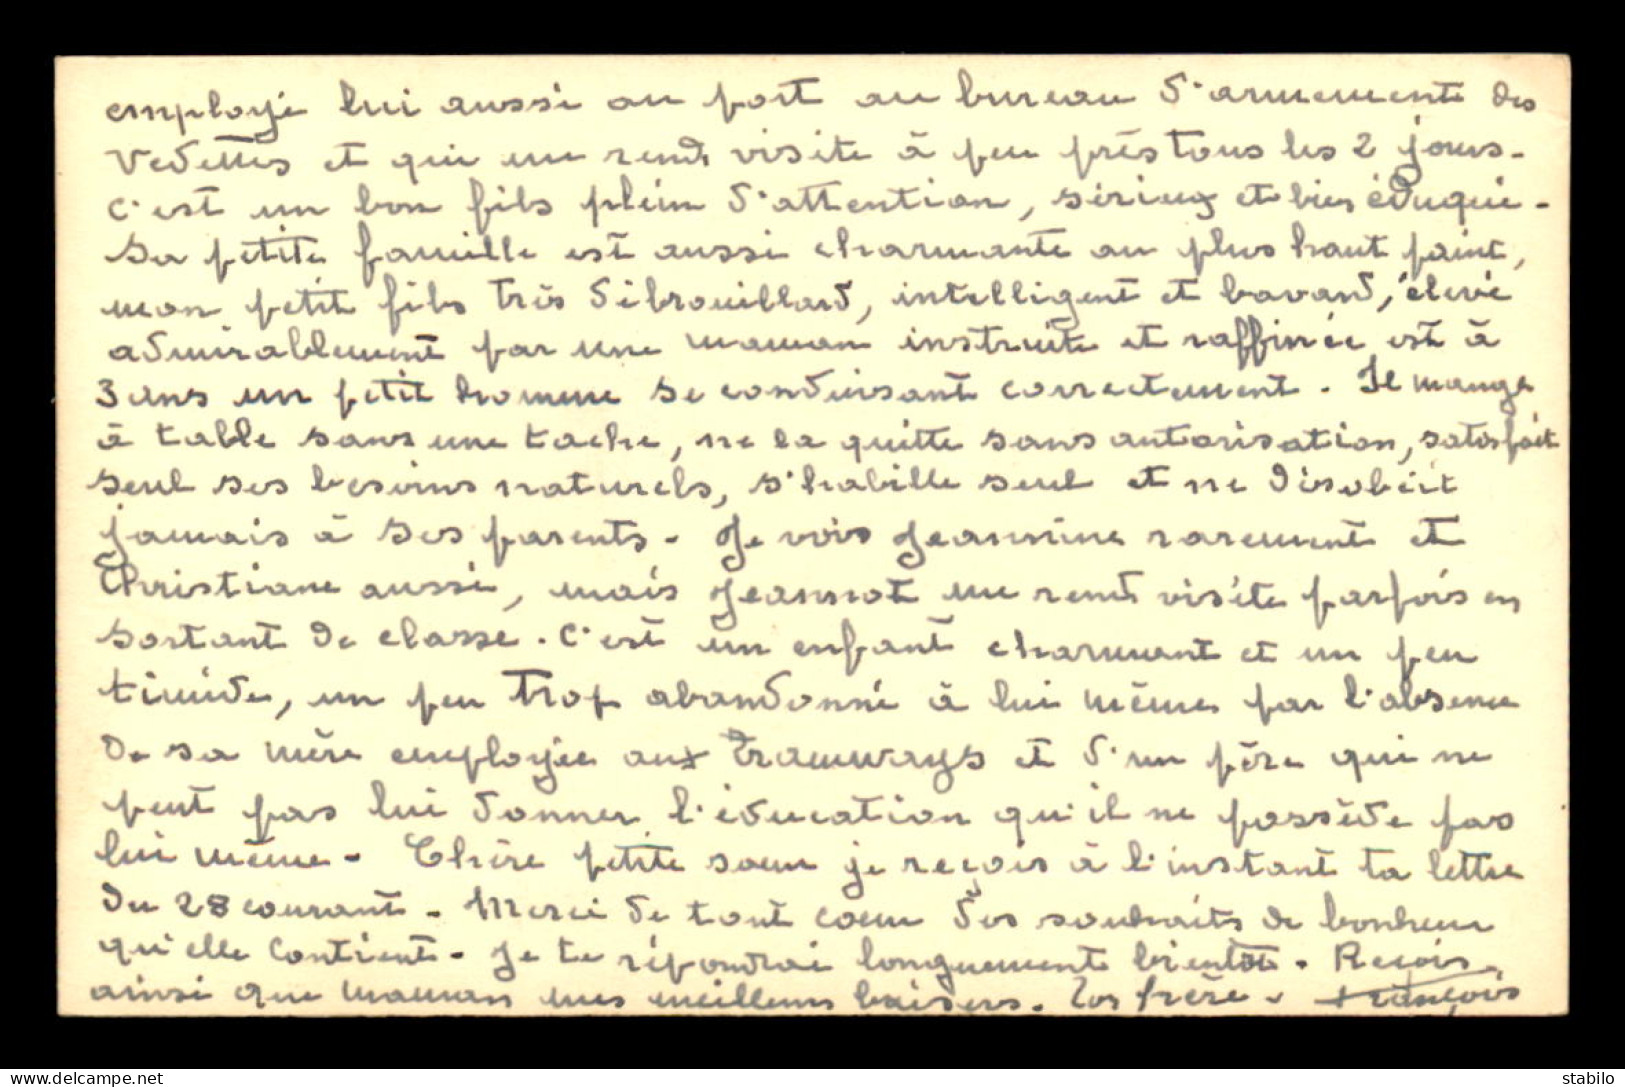 employé lui aussi au port au bureau d'armements des
Vedettes et qui me rend visite à peu près tous les 2 jours.
C'est un bon fils plein d'attention, sérieux et bien éduqué.
Sa petite famille est aussi charmante au plus haut point,
mon petit fils très débrouillard, intelligent et bavard, élevé
admirablement par une maman instruite et raffinée est à
3 ans un petit homme se conduisant correctement. Il mange
à table sans une tache, ne la quitte sans autorisation, satisfait
seul ses besoins naturels, s'habille seul et ne désobéit
jamais à ses parents. Je vois Jeannine rarement et
Christiane aussi, mais Jeannot me rend visite parfois en
sortant de classe. C'est un enfant charmant et un peu
timide, un peu trop abandonné à lui même par l'absence
de sa mère employée aux Tramways et d'un père qui ne
peut pas lui donner l'éducation qu'il ne possède pas
lui même. Chère petite soeur je reçois à l'instant ta lettre
du 28 courant. Merci de tout coeur des souhaits de bonheur
qu'elle contient. Je te répondrai longuement bientôt. Reçois
ainsi que maman mes meilleurs baisers. Ton frère. François
delcampe.net
stabilo